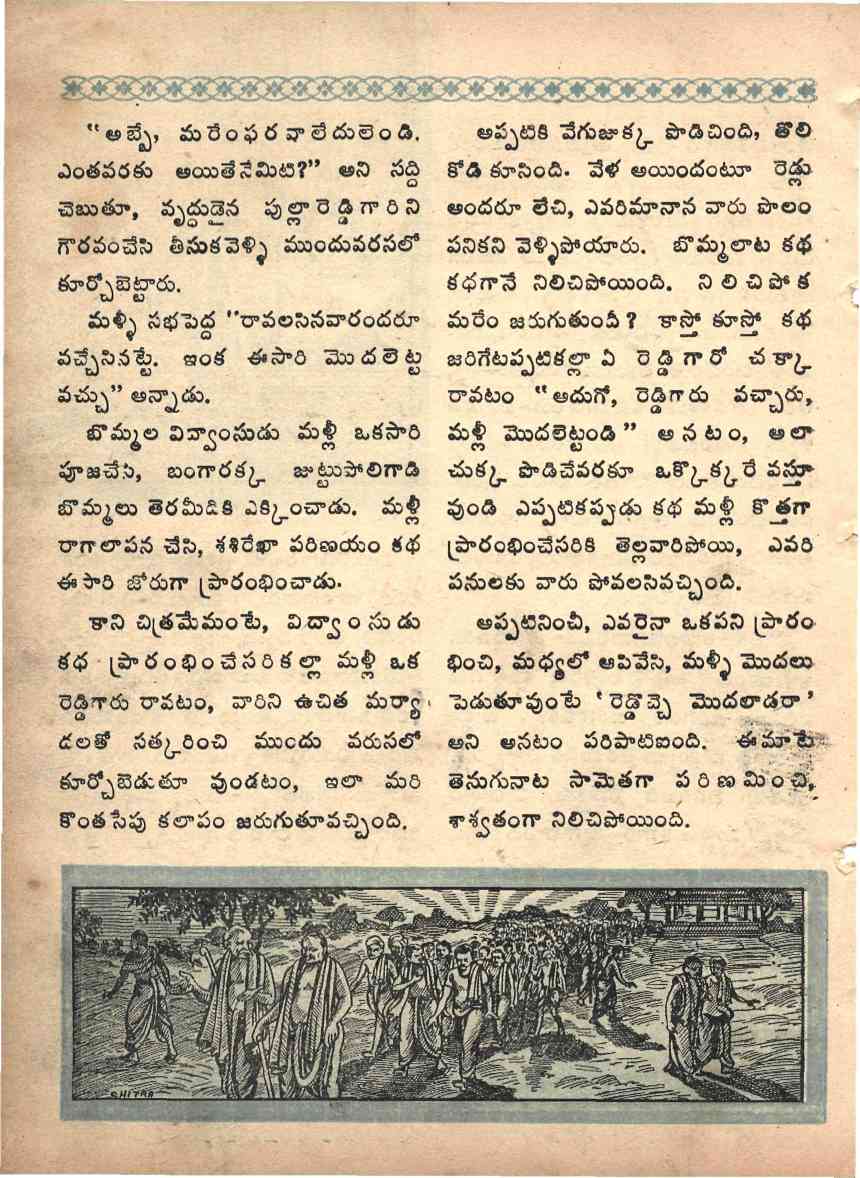 “అబ్బే, మరేంఫరవాలేదులెండి.
ఎంతవరకు అయితేనేమిటి?” అని సద్ది
చెబుతూ, వృద్ధుడైన పుల్లారెడ్డిగారిని
గౌరవంచేసి తీసుకవెళ్ళి ముందువరసలో
కూర్చోబెట్టారు.
మళ్ళీ సభపెద్ద “రావలసినవారందరూ
వచ్చేసినట్టే. ఇంక ఈసారి మొదలెట్ట
వచ్చు” అన్నాడు.
బొమ్మల విద్వాంసుడు మళ్లీ ఒకసారి
పూజచేసి, బంగారక్క జుట్టుపోలిగాడి
బొమ్మలు తెరమీదికి ఎక్కించాడు. మళ్లీ
రాగాలాపన చేసి, శశిరేఖా పరిణయం కథ
ఈసారి జోరుగా ప్రారంభించాడు.
కాని చిత్రమేమంటే, విద్వాంసుడు
కధ ప్రారంభించేసరికల్లా మళ్లీ ఒక
రెడ్డిగారు రావటం, వారిని ఉచిత మర్యా
దలతో సత్కరించి ముందు వరుసలో
కూర్చోబెడుతూ వుండటం, ఇలా మరి
కొంతసేపు కలాపం జరుగుతూవచ్చింది.
అప్పటికి వేగుజుక్క పొడిచింది, తొలి
కోడి కూసింది. వేళ అయిందంటూ రెడ్లు
అందరూ లేచి, ఎవరిమానాన వారు పొలం
పనికని వెళ్ళిపోయారు. బొమ్మలాట కథ
కధగానే నిలిచిపోయింది. నిలిచిపోక
మరేం జరుగుతుంది? కాస్తో కూస్తో కథ
జరిగేటప్పటికల్లా ఏ రెడ్డిగారో చక్కా
రావటం “అదుగో, రెడ్డిగారు వచ్చారు,
మళ్లీ మొదలెట్టండి” అనటం, అలా
చుక్క పొడిచేవరకూ ఒక్కొక్కరే వస్తూ
వుండి ఎప్పటికప్పుడు కథ మళ్లీ కొత్తగా
ప్రారంభించేసరికి తెల్లవారిపోయి, ఎవరి
పనులకు వారు పోవలసివచ్చింది.
అప్పటినించీ, ఎవరైనా ఒకపని ప్రారం
భించి, మధ్యలో ఆపివేసి, మళ్ళీ మొదలు
పెడుతూవుంటే ‘రెడ్డొచ్చె మొదలాడరా’
అని అనటం పరిపాటిఐంది. ఈమాటే
తెనుగునాట సామెతగా పరిణమించి,
శాశ్వతంగా నిలిచిపోయింది.
CHITRA